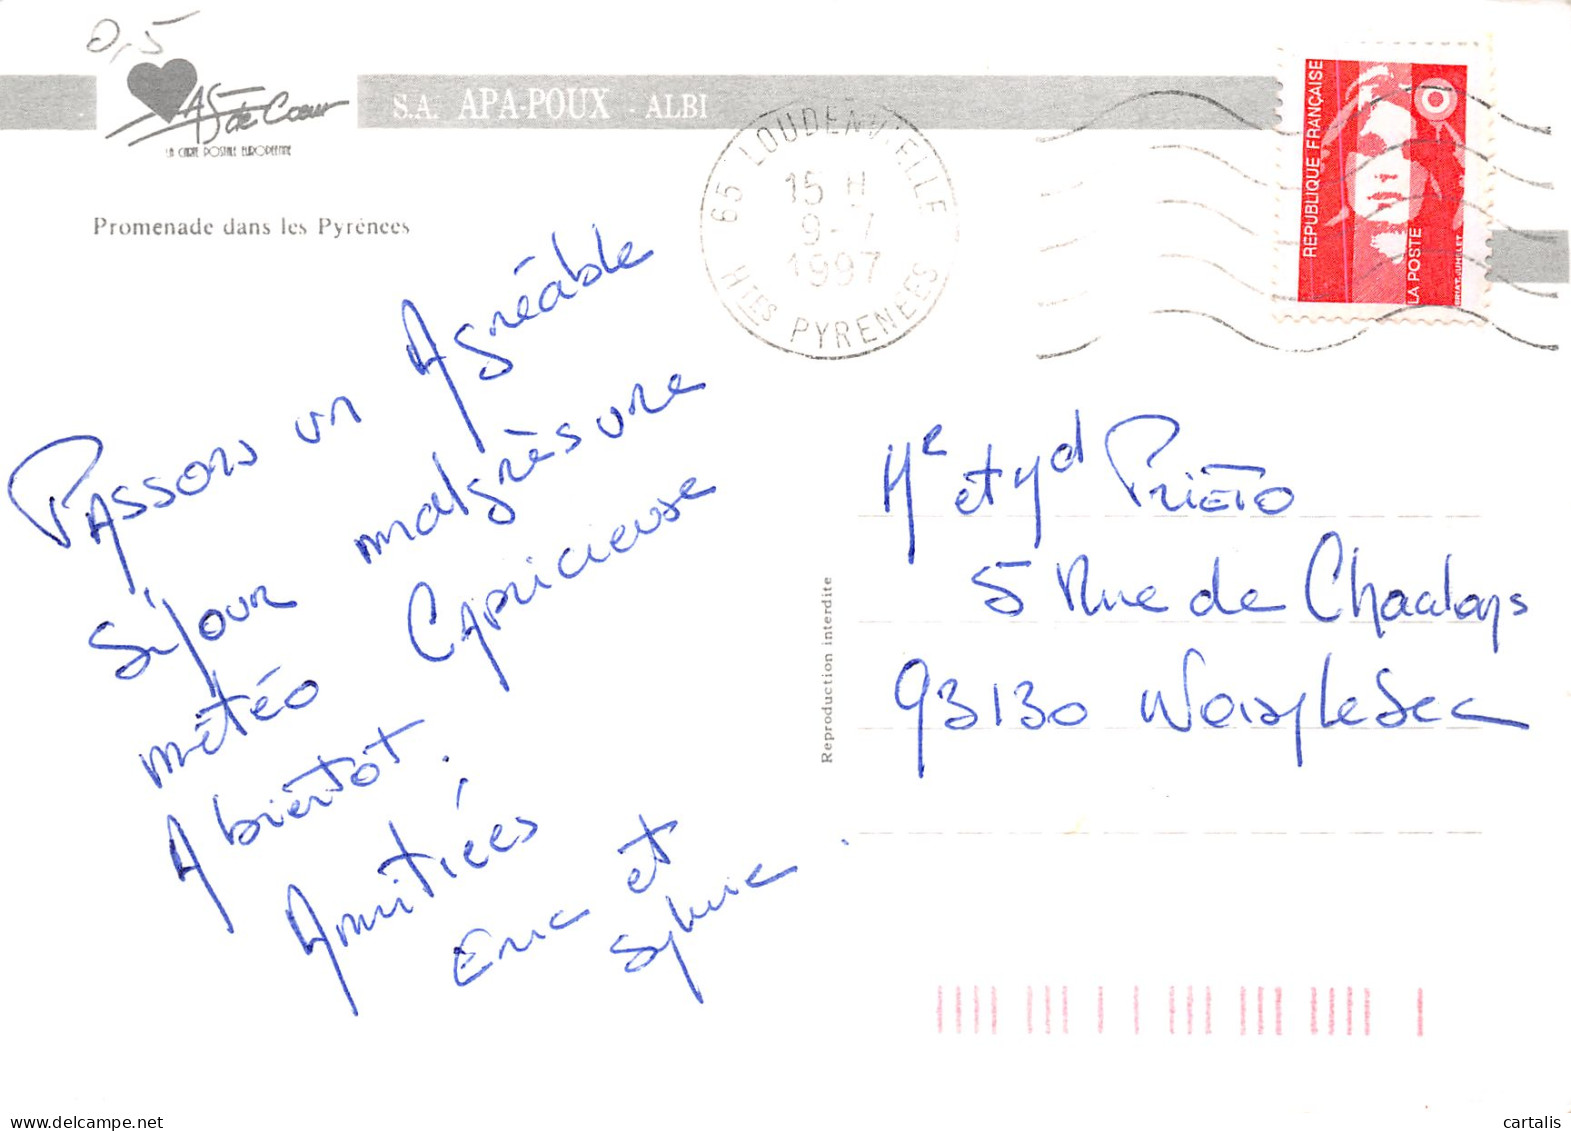 0,5
AS de Cœur
LA CARTE POSTALE EUROPEENNE
S.A. APA-POUX - ALBI
Promenade dans les Pyrénées
65 LOUDENVIELLE
15 H
9-7
1997
Htes PYRENEES
REPUBLIQUE FRANÇAISE
LA POSTE
BRIAT-JUMELET
Passons un Agréable
séjour malgrès une
météo Capricieuse
A bientôt.
Amitiées
Eric et
Sylvie.
Reproduction interdite
Me et Prieto
5 Rue de
93130 Noisy le Sec
cartalis